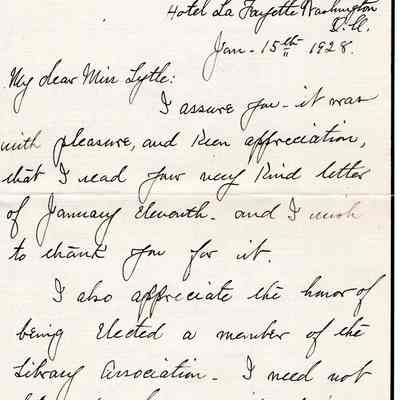 Hotel La Fayette Washington
D.C.
Jan- 15th 1928.
My dear Miss Lytle:
I assure you - it was
with pleasure, and keen appreciation,
that I read your very kind letter
of January Eleventh. and I wish
to thank you for it.
I also appreciate the honor of
being Elected a member of the
Library Association - I need not